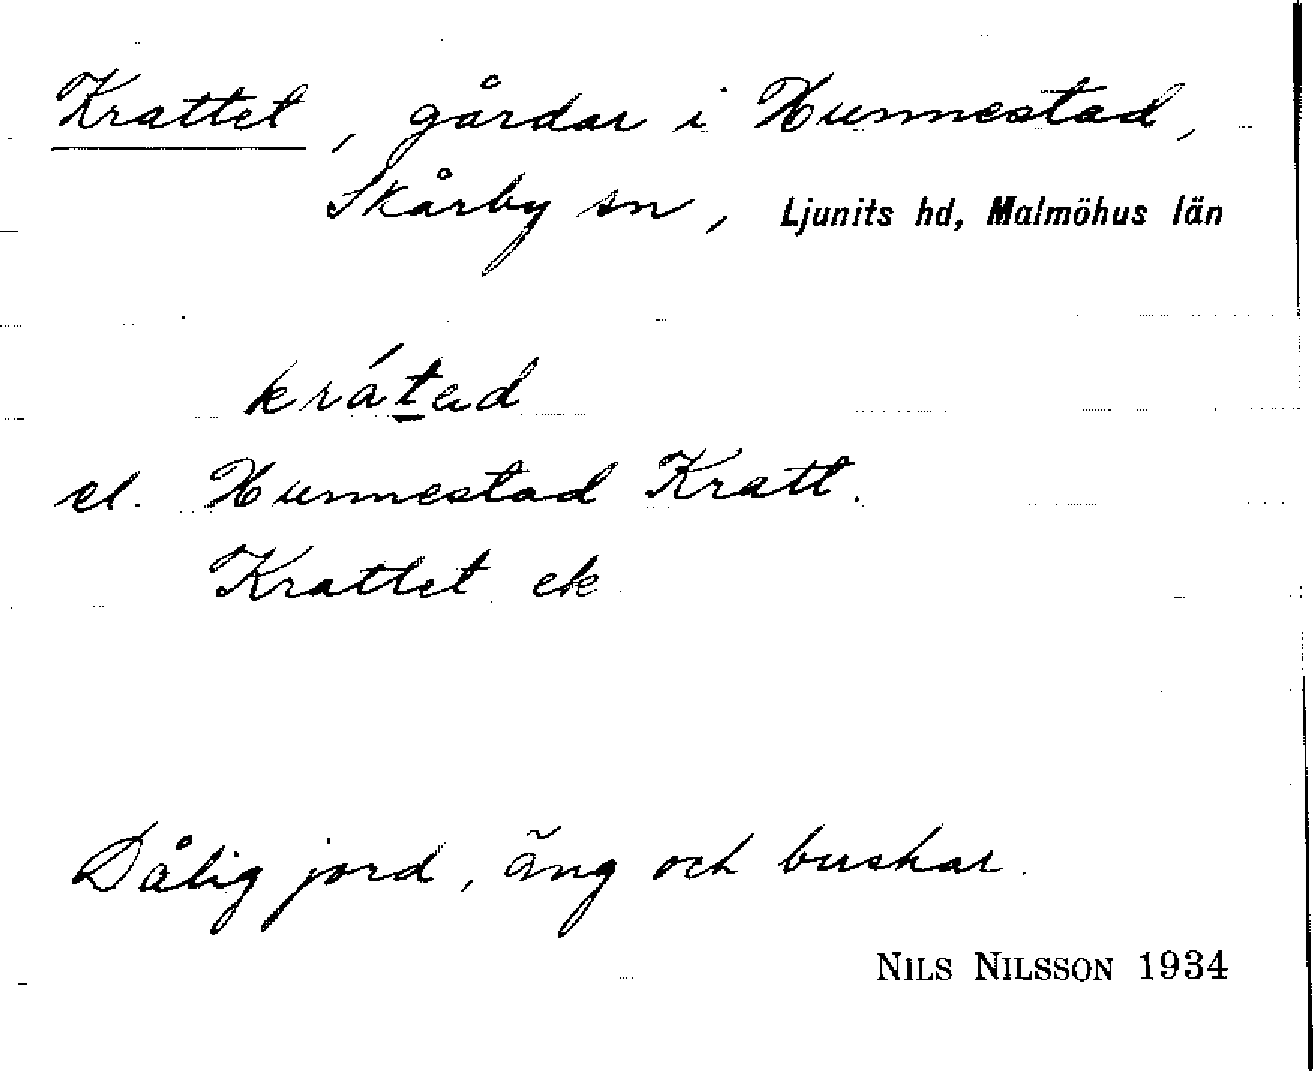 Krattet, gårdar i Hunnestad,
Skårby sn, Ljunits hd, Malmöhus län
kráted
el. Hunnestad Kratt.
Krattet ek
Dålig jord, äng och buskar.
NILS NILSSON 1934